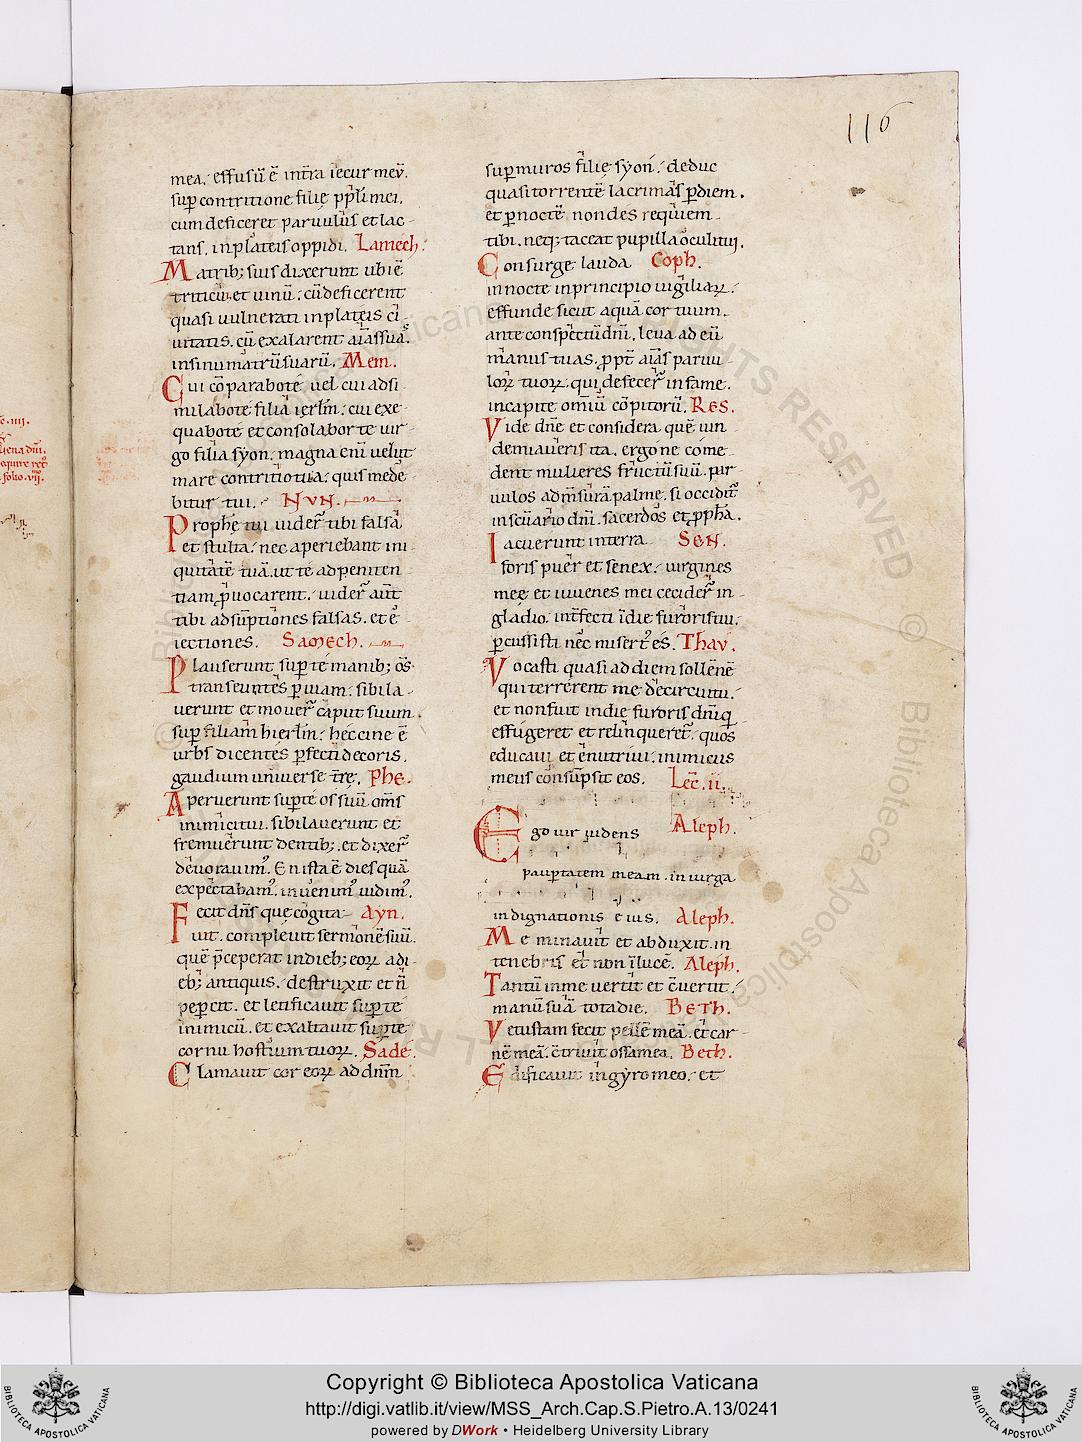 116
mea. effusū ē in tr̄a iecur meū.
sup̱ contritione filię pp̄li mei.
cum deficeret paruulus et lac-
tans. in plateis oppidi. Lamech.
Matrib; suis dixerunt ubi ē
triticū et uinū. cū deficerent
quasi uulnerati in plateis ci-
uitatis. cū exalarent aīas suas.
in sinu matrū suarū. Mem.
Cui cōparabo te. uel cui adsi-
milabo te filia ierłm. cui exe-
quabo te et consolabor te uir-
go filia syon. magna enī uelut
mare contritio tua. quis mede-
bitur tui. NUN.
Prophę tui uider̄ tibi falsa
et stulta. nec aperiebant ini-
quitatē tuā. ut te ad peniten-
tiam p̱uocarent. uider̄ aūt
tibi adsūptiones falsas. et e-
iectiones. Samech.
Plauserunt sup̱ te manib; oms̄
transeuntes p̱ uiam. sibila-
uerunt et mouer̄ caput suum.
sup̱ filiam hierłm. hęccine ē
urbs dicentes p̱fecti decoris.
gaudium uniuerse tr̄ę. Phe.
Aperuerunt sup̱ te os suū om̄s
inimici tui. sibilauerunt et
fremuerunt dentib;. et dixer̄
deuorauim᾽. En ista ē dies quā
expectabam᾽. inuenim᾽ uidim᾽.
Fecit dn̄s que cogita- Ayn.
uit. compleuit sermonē suū.
quē p̄ceperat in dieb; eoꝝ adi-
eb; antiquis. destruxit et n̄
pepercit. et letificauit sup̱ te
inimicū. et exaltauit sup̱ te
cornu hostium tuoꝝ. Sade.
Clamauit cor eoꝝ ad dn̄m
sup̱ muros filię syon. deduc
quasi torrentē lacrimas p̱ diem.
et p̱ noctē non des requiem
tibi. neq; taceat pupilla oculi tui.
Consurge lauda Coph.
in nocte in principio uigiliaꝝ.
effunde sicut aquā cor tuum.
ante conspectū dn̄i. leua ad eū
manus tuas. ꝓpt̄ aīas paruu-
loꝝ tuoꝝ. qui defecer̄ in fame.
in capite omniū cōpitorū. Res.
Vide dn̄e et considera quē uin-
demiaueris ita. ergo ne come-
dent mulieres fructū suū. par-
uulos ad m̄surā palme. si occidit̄
in sc̄uario dn̄i. sacerdos et ꝓpha.
Iacuerunt in terra Sen.
foris puer et senex. uirgines
mee et iuuenes mei cecider̄ in
gladio. int̄fecti ī die furoris tui.
p̱cussisti nec misert᾽ es. Thau.
Vocasti quasi ad diem sollēnē
qui terrerent me de circuitu.
et non fuit in die furoris dn̄i q̇
effugeret et relinqueret᾽. quos
educaui et enutriui. inimicus
meus consūpsit eos. Lec̄. ii.
Ego uir uidens Aleph.
paup̱tatem meam. in uirga
indignationis eius. Aleph.
Me minauit et abduxit. in
tenebris et non ī lucē. Aleph.
Tantū in me uertit et c̄uertit.
manū suā tota die. Beth.
Vetustam fecit pellē meā. et car-
nē meā. c̄triuit ossa mea. Beth.
Edificauit in gyro meo. et
Copyright © Biblioteca Apostolica Vaticana
http://digi.vatlib.it/view/MSS_Arch.Cap.S.Pietro.A.13/0241
powered by DWork • Heidelberg University Library